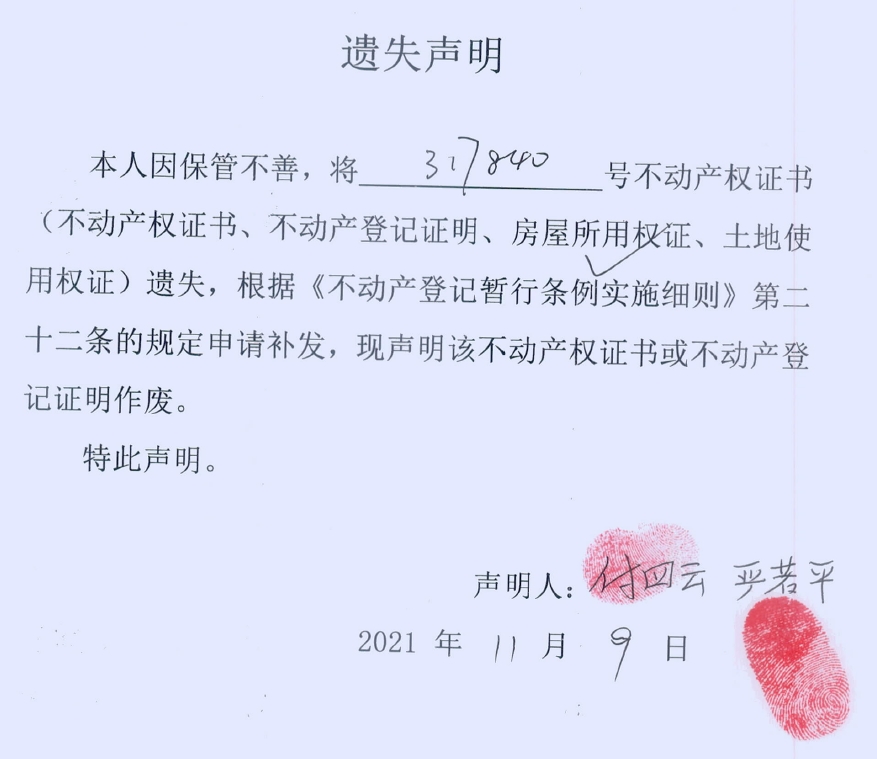 遗失声明
本人因保管不善，将 317840 号不动产权证书
（不动产权证书、不动产登记证明、房屋所用权证、土地使
用权证）遗失，根据《不动产登记暂行条例实施细则》第二
十二条的规定申请补发，现声明该不动产权证书或不动产登
记证明作废。
特此声明。
声明人：付四云 严若平
2021 年 11 月 9 日